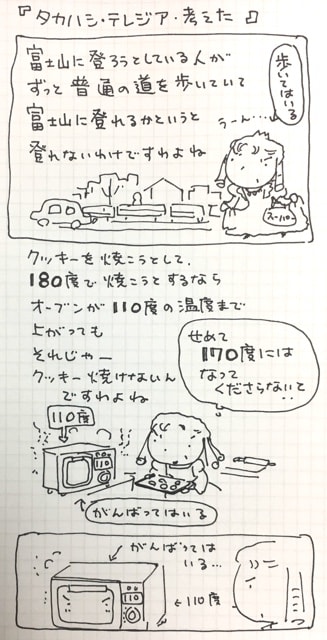 『タカハシ・テレジア・考えた 』
富士山に登ろうとしている人が
ずっと普通の道を歩いていて
富士山に登れるかというと
登れないわけですわよね
歩いてはいる
うーん…
スーパー
クッキーを焼こうとして、
180度で焼こうとするなら
オーブンが110度の温度まで
上がっても
それじゃー
クッキー焼けないん
ですわよね
せめて
170度には
なって
くださらないと
110度
110
がんばってはいる
がんばっては
いる…
110
←110度